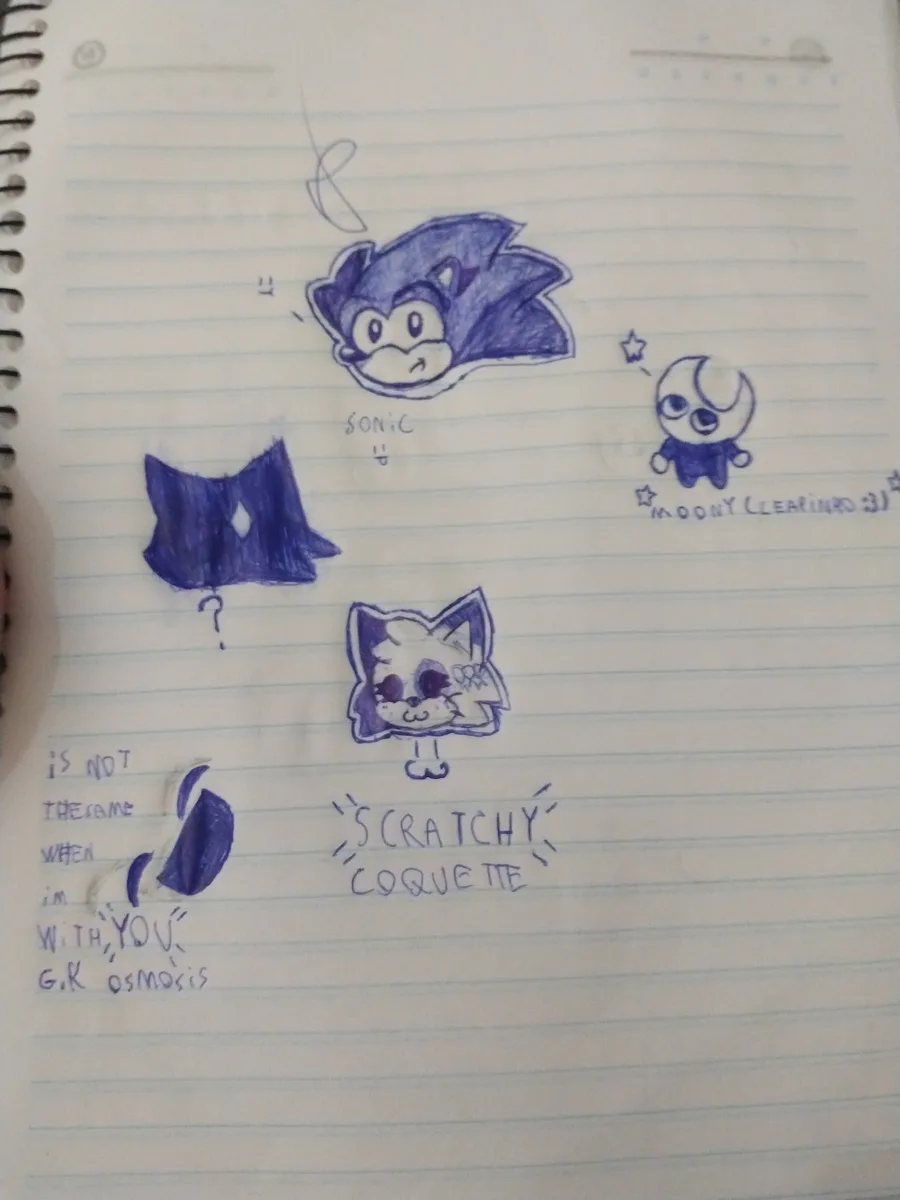 SONiC
MOONY (CLEARINHO :3)
?
SCRATCHY
COQUETTE
iS NOT
THE SAME
WHEN
iM
WiTH YOU
G.K OSMOSiS